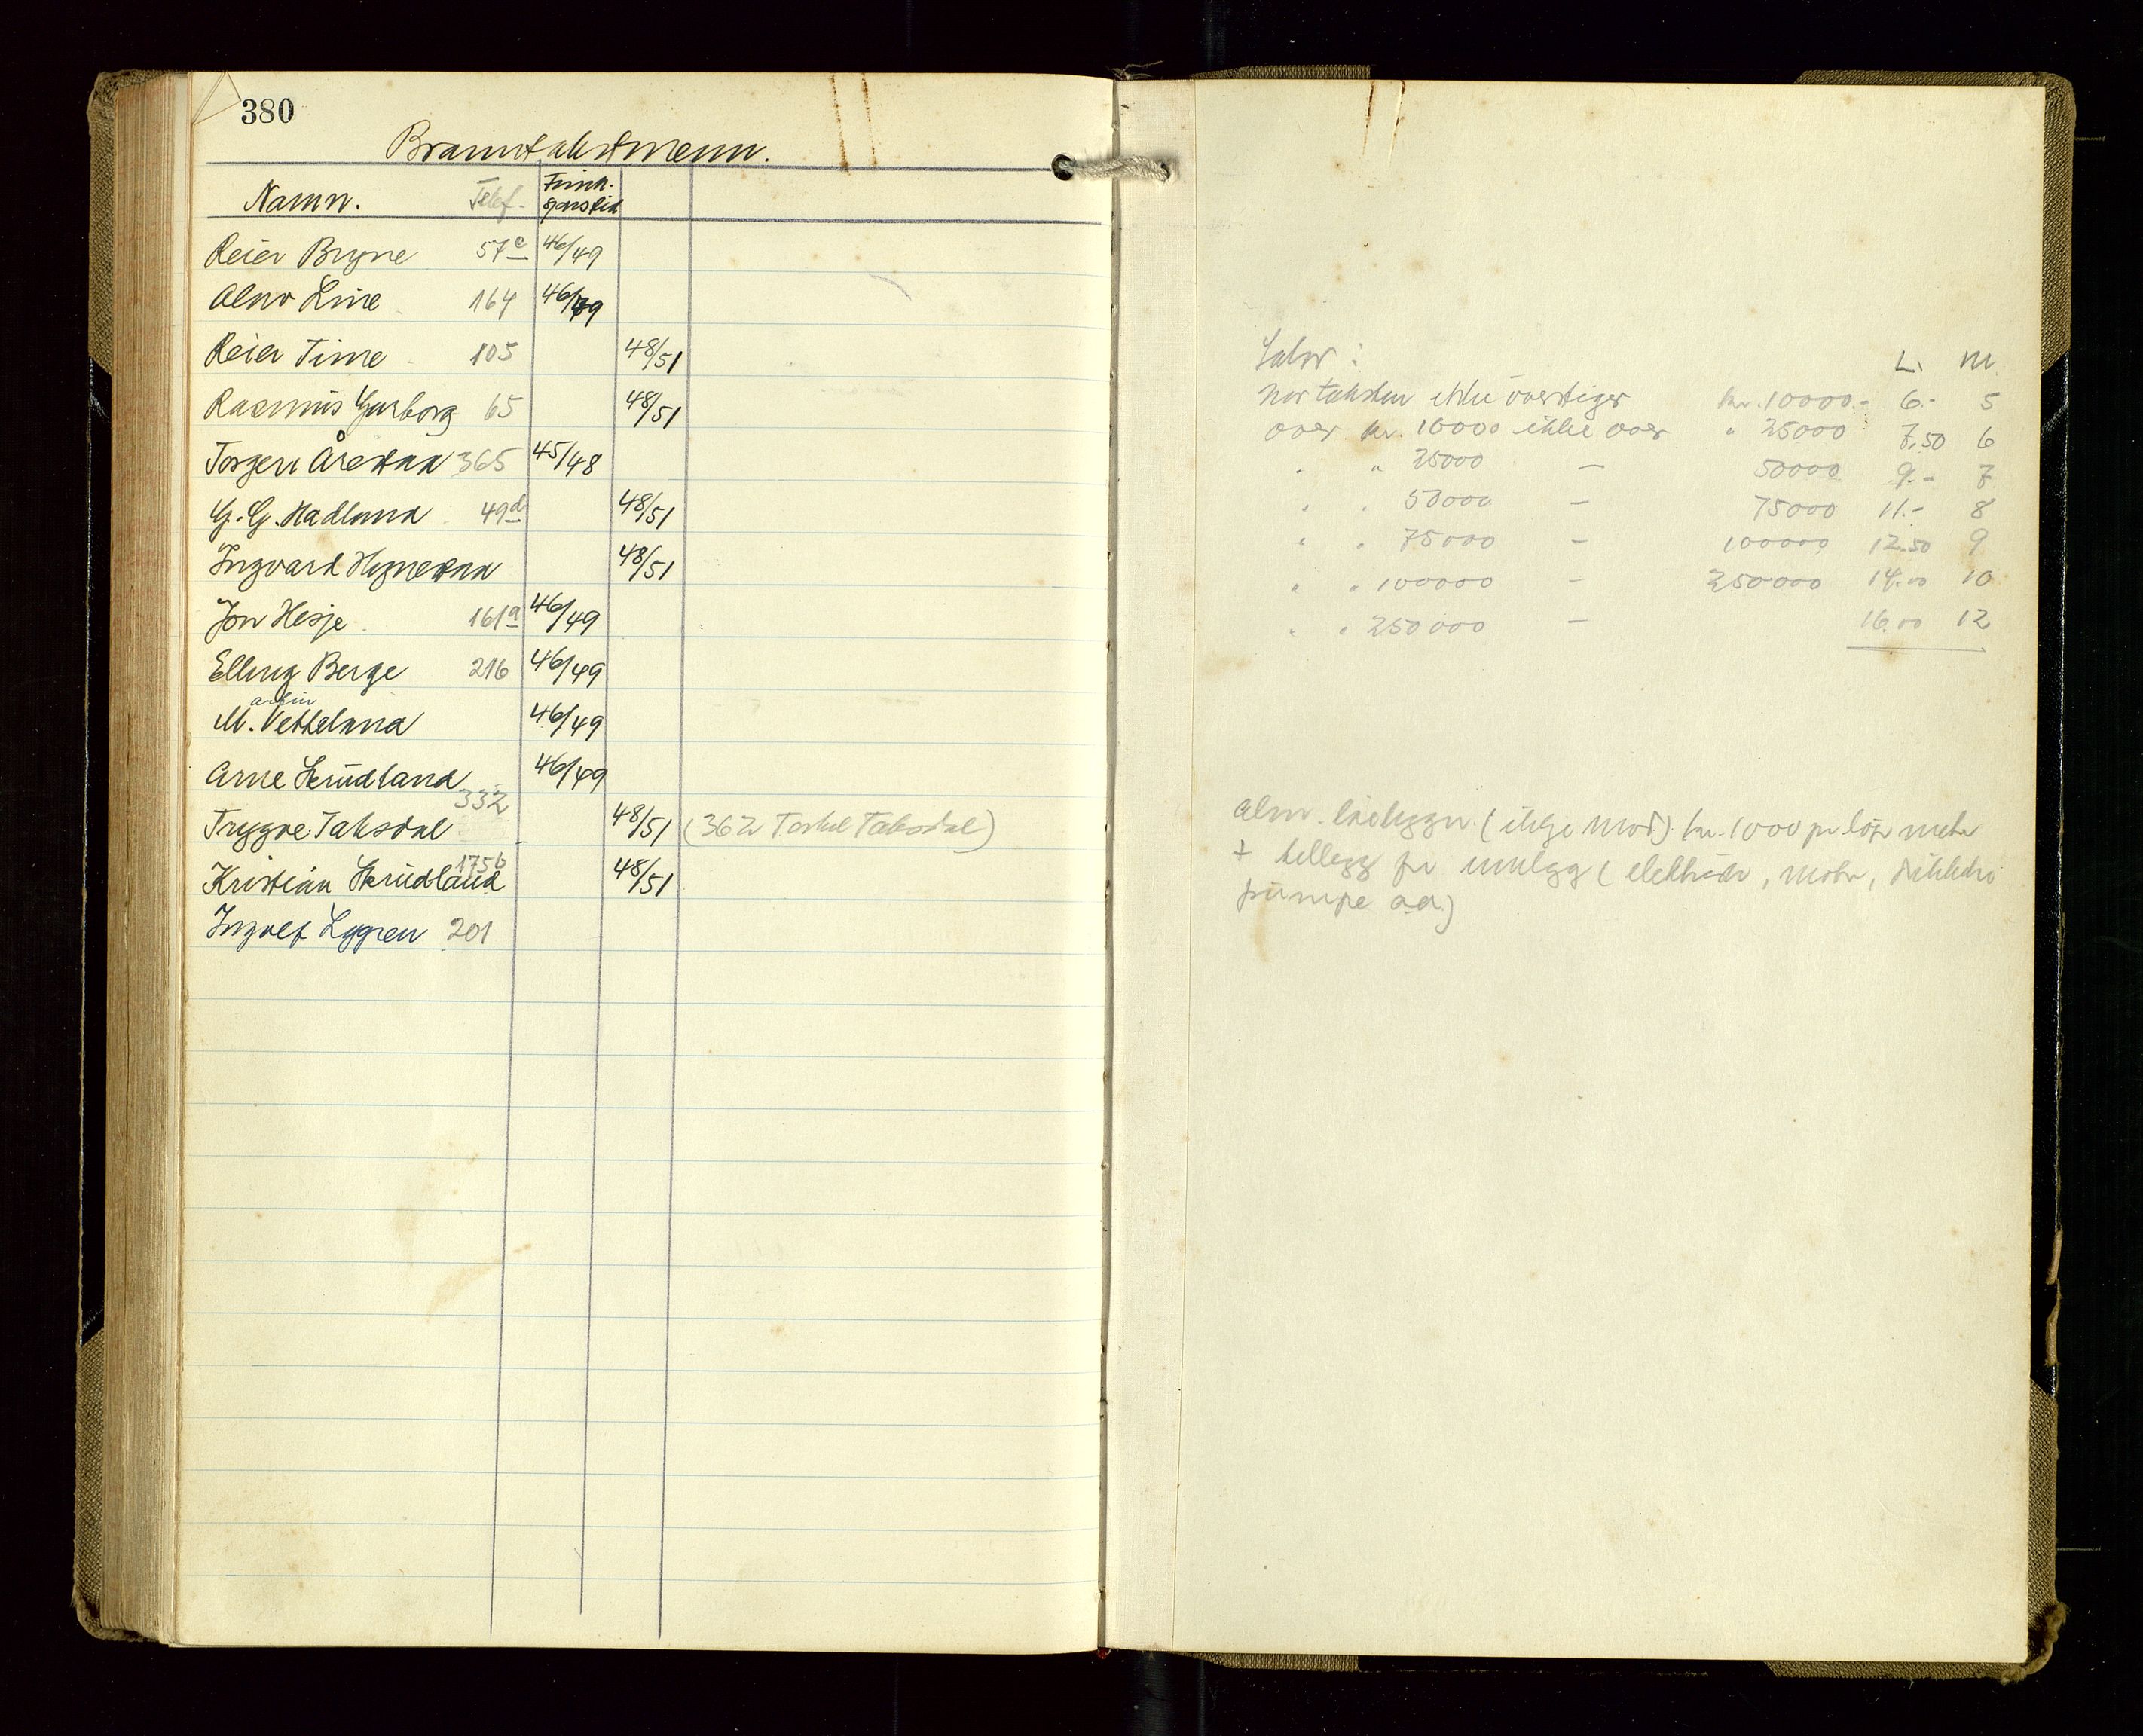 380
Branntakstmenn.
Namn. Telef. Funk.
sjonstid
Reier Bryne 57e 46/49
Olav Line 164 46/49
Reier Time 105 48/51
Rasmus Garborg 65 48/51
Torger Årestad 365 45/48
G. G. Hadland 49d 48/51
Ingvard Hynestad 48/51
Jon Hesje 161a 46/49
Elling Berge 216 46/49
M. Vetteland 46/49
Arne Skrudland 46/49
332
Trygve Taksdal 48/51 (362 Torkel Taksdal)
175b
Kristian Skrudland 48/51
Ingolf Lygren 201
L. M
Når taksten ikke overstiger kr. 10000.- 6.- 5
over kr. 10000 ikke over " 25000 7,50 6
" " 25000 — 50000 9.- 7
" " 50000 — 75000 11.- 8
" " 75000 — 100000 12.50 9
" " 100000 — 250000 14.00 10
" " 250000 — 16.00 12
Alm. (ikkje mod.) kr. 1000 pr løp. meter
+ tillegg for innlegg (elektrisk, motor,
pumpe o.a.)